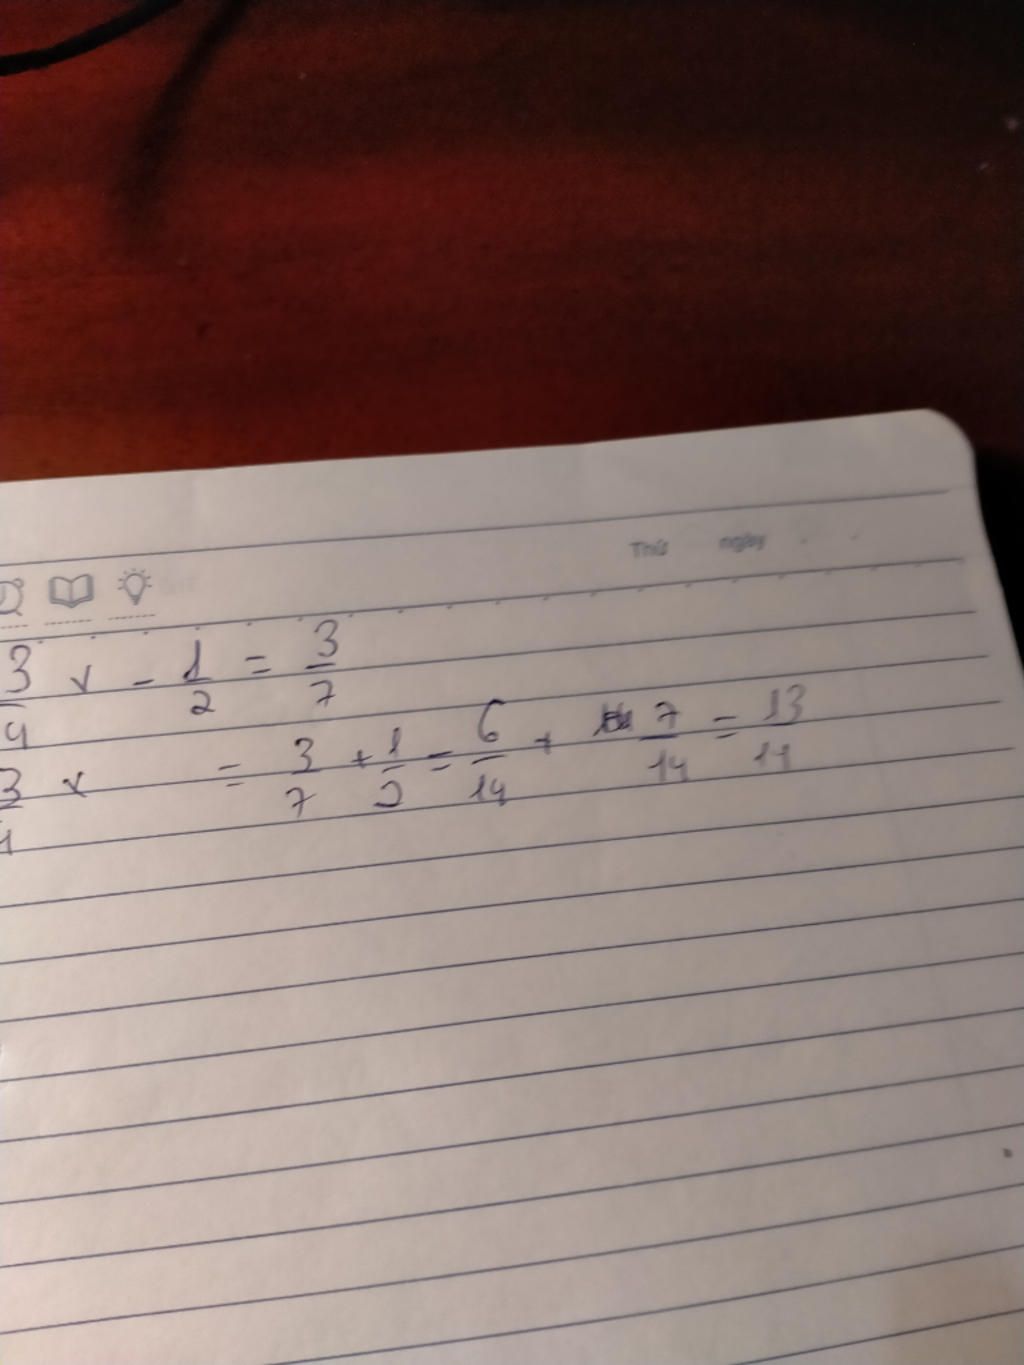 Thứ ngày
3/4 x - 1/2 = 3/7
3/4 x = 3/7 + 1/2 = 6/14 + 7/14 = 13/14